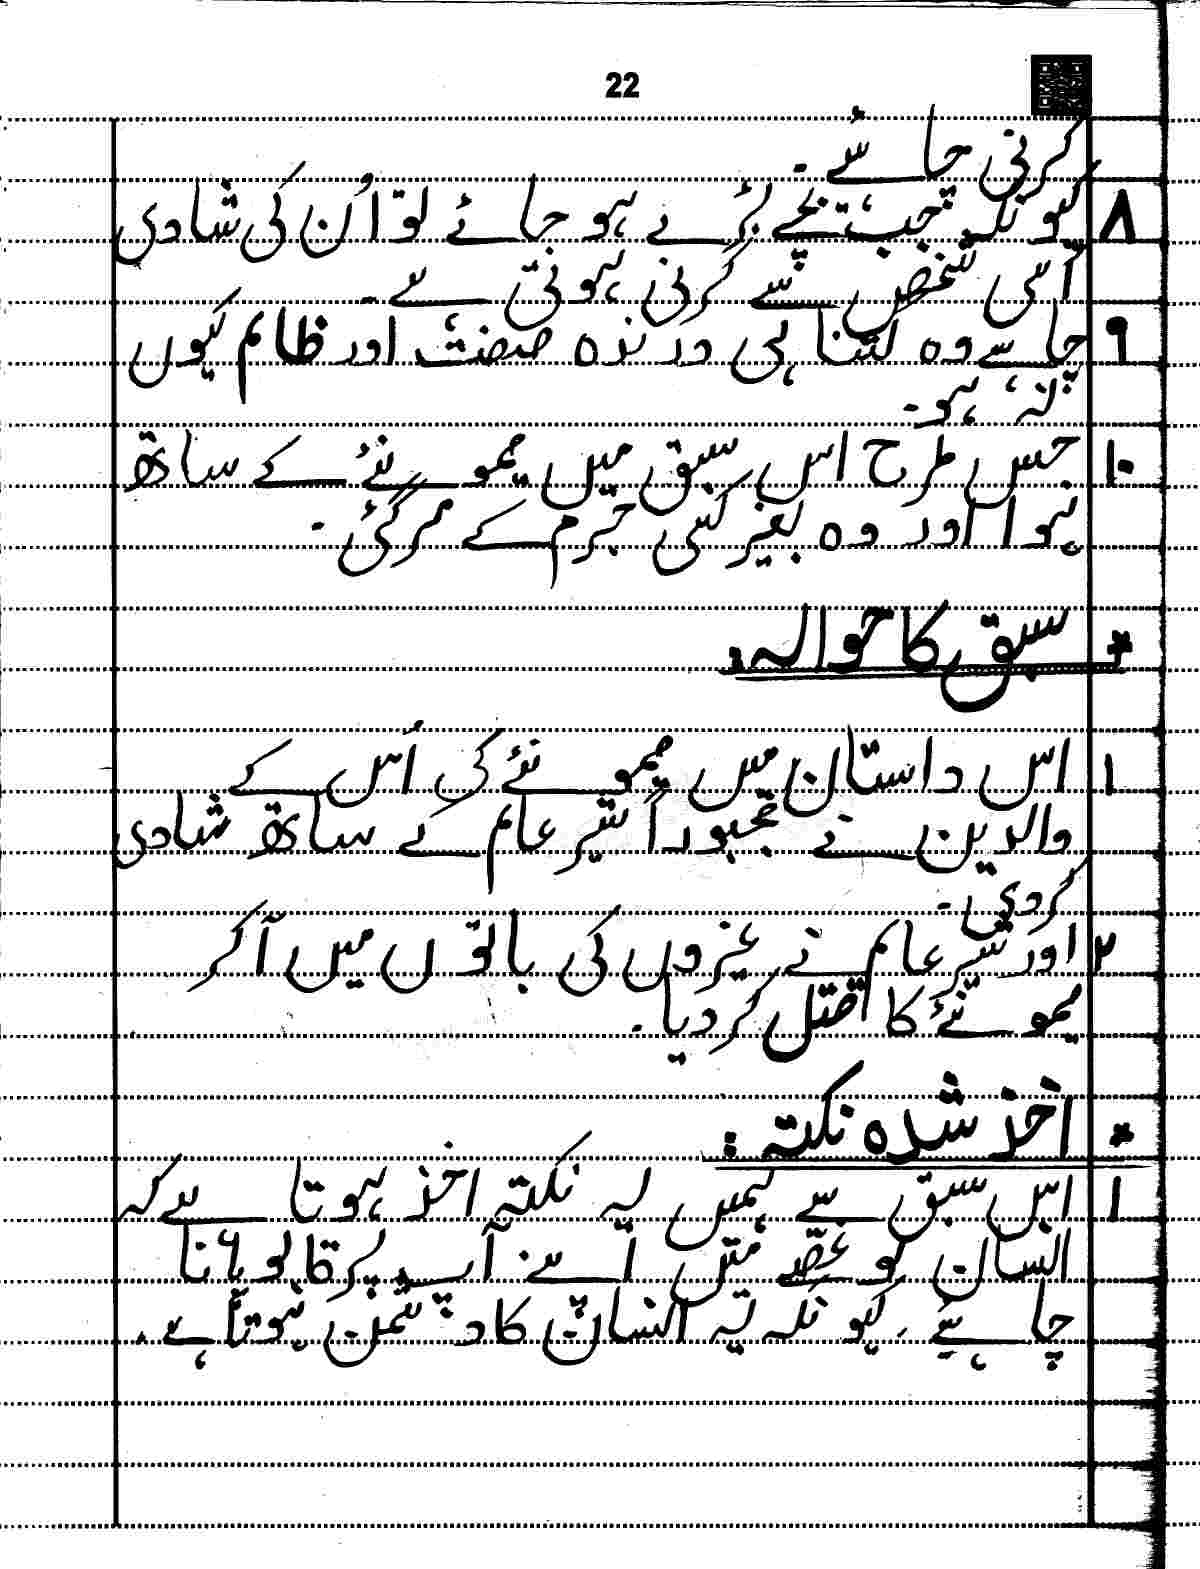 22
کرنی جائے۔
۸ کیونکہ جب بچے بڑے ہو جائے تو اُن کی شادی
اُسی شخص سے کرنی ہوتی ہے۔
۹ چاہے وہ کتنا ہی درندہ صفت اور ظالم کیوں
نہ ہو۔
۱۰ جس طرح اس سبق میں میمونئے کے ساتھ
ہوا اور وہ بغیر کسی جرم کے مرگئی۔
* سبق کا حوالہ:
۱ اس داستان میں میمونئے کی اُس کے
والدین نے مجبوراً شیر عالم کے ساتھ شادی
کردی۔
۲ اور شیر عالم نے غیروں کی باتوں میں آکر
میمونئے کا قتل کردیا۔
* اخذ شدہ نکتہ:
۱ اس سبق سے ہمیں یہ نکتہ اخذ ہوتا ہے کہ
انسان کو غصے میں اپنے آپ پر قابو پانا
چاہیئے۔ کیونکہ یہ انسان کا دشمن ہوتا ہے۔